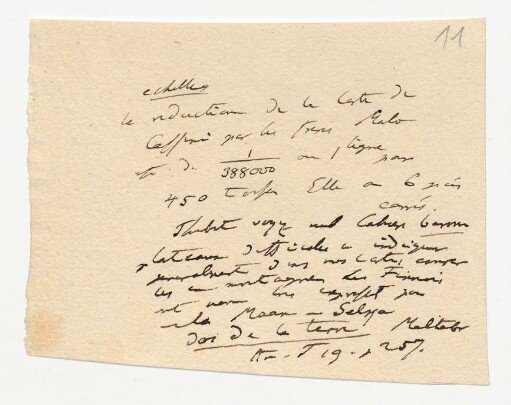 11
echelles
la reduction de la Carte de
Cassini par les freres Malo
est de 1/388000 ou 1 ligne par
450 toises Elle a 6 pieds
carrés.
Thibet voyez mal Cahier
plateaux difficiles a indiquer
generalement dans nos Cartes
les en montagnes Les Finnois
ont un par
Maan Selga
Dos de la terre Maltebr
An. T 19. p 257.